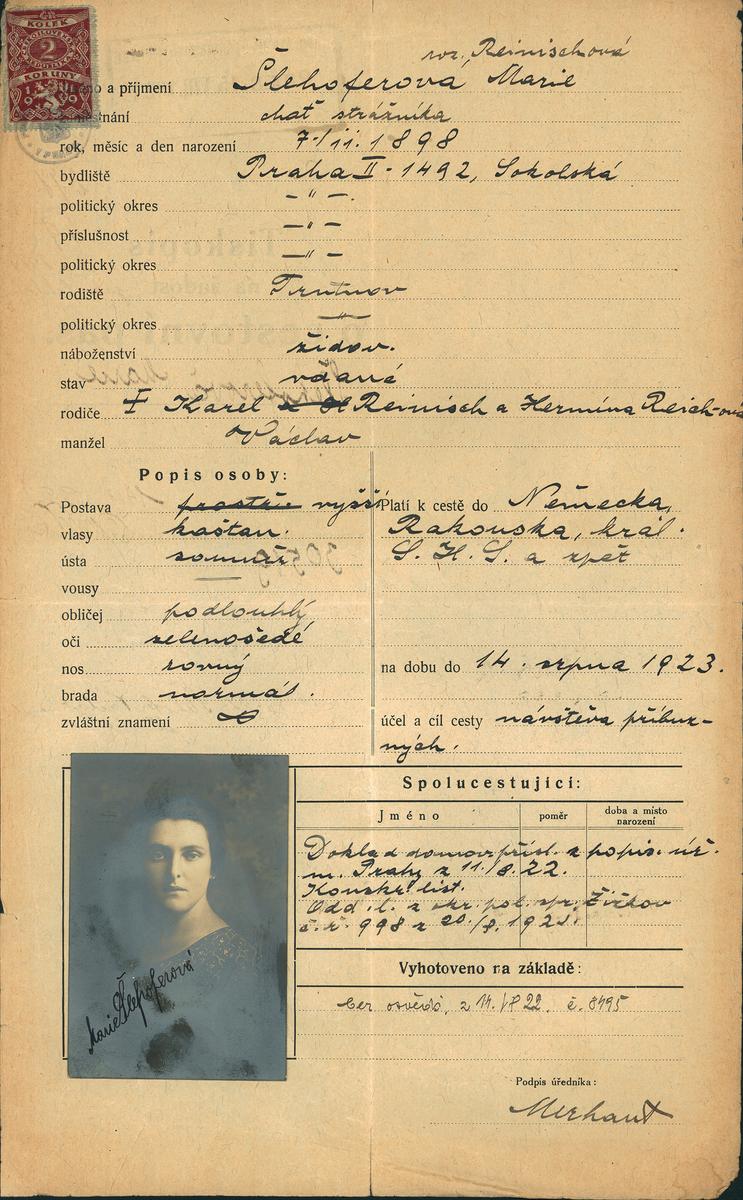 KOLEK
2
KORUNY
1919
roz. Reinischová
Jméno a příjmení Šlehoferová Marie
zaměstnání choť strážníka
rok, měsíc a den narození 7./11. 1898
bydliště Praha II - 1492, Sokolská
politický okres — " —.
příslušnost — " —
politický okres — " —
rodiště Trutnov
politický okres — " —
náboženství židov.
stav vdaná
rodiče † Karel Reinisch a Hermína Reich-ová
manžel Václav
Popis osoby:
Postava prostř. vyšší
vlasy kaštan.
ústa souměr
vousy
obličej podlouhlý
oči zelenošedé
nos rovný
brada normál.
zvláštní znamení
Platí k cestě do Německa,
Rakouska, král.
S. H. S. a zpět
na dobu do 14. srpna 1923.
účel a cíl cesty návštěva příbuz-
ných.
Marie Šlehoferová
Spolucestující:
Jméno poměr doba a místo narození
Doklad domov. přísl. z popis. úř.
m. Prahy z 11./8. 22.
Konskr. list.
Odd. l. z okr. pol. spr. Žižkov
č. ř. 998 z 20./8. 1921.
Vyhotoveno na základě:
cer osvědč. z 14./VIII 22. č. 8495
Podpis úředníka:
Merhaut